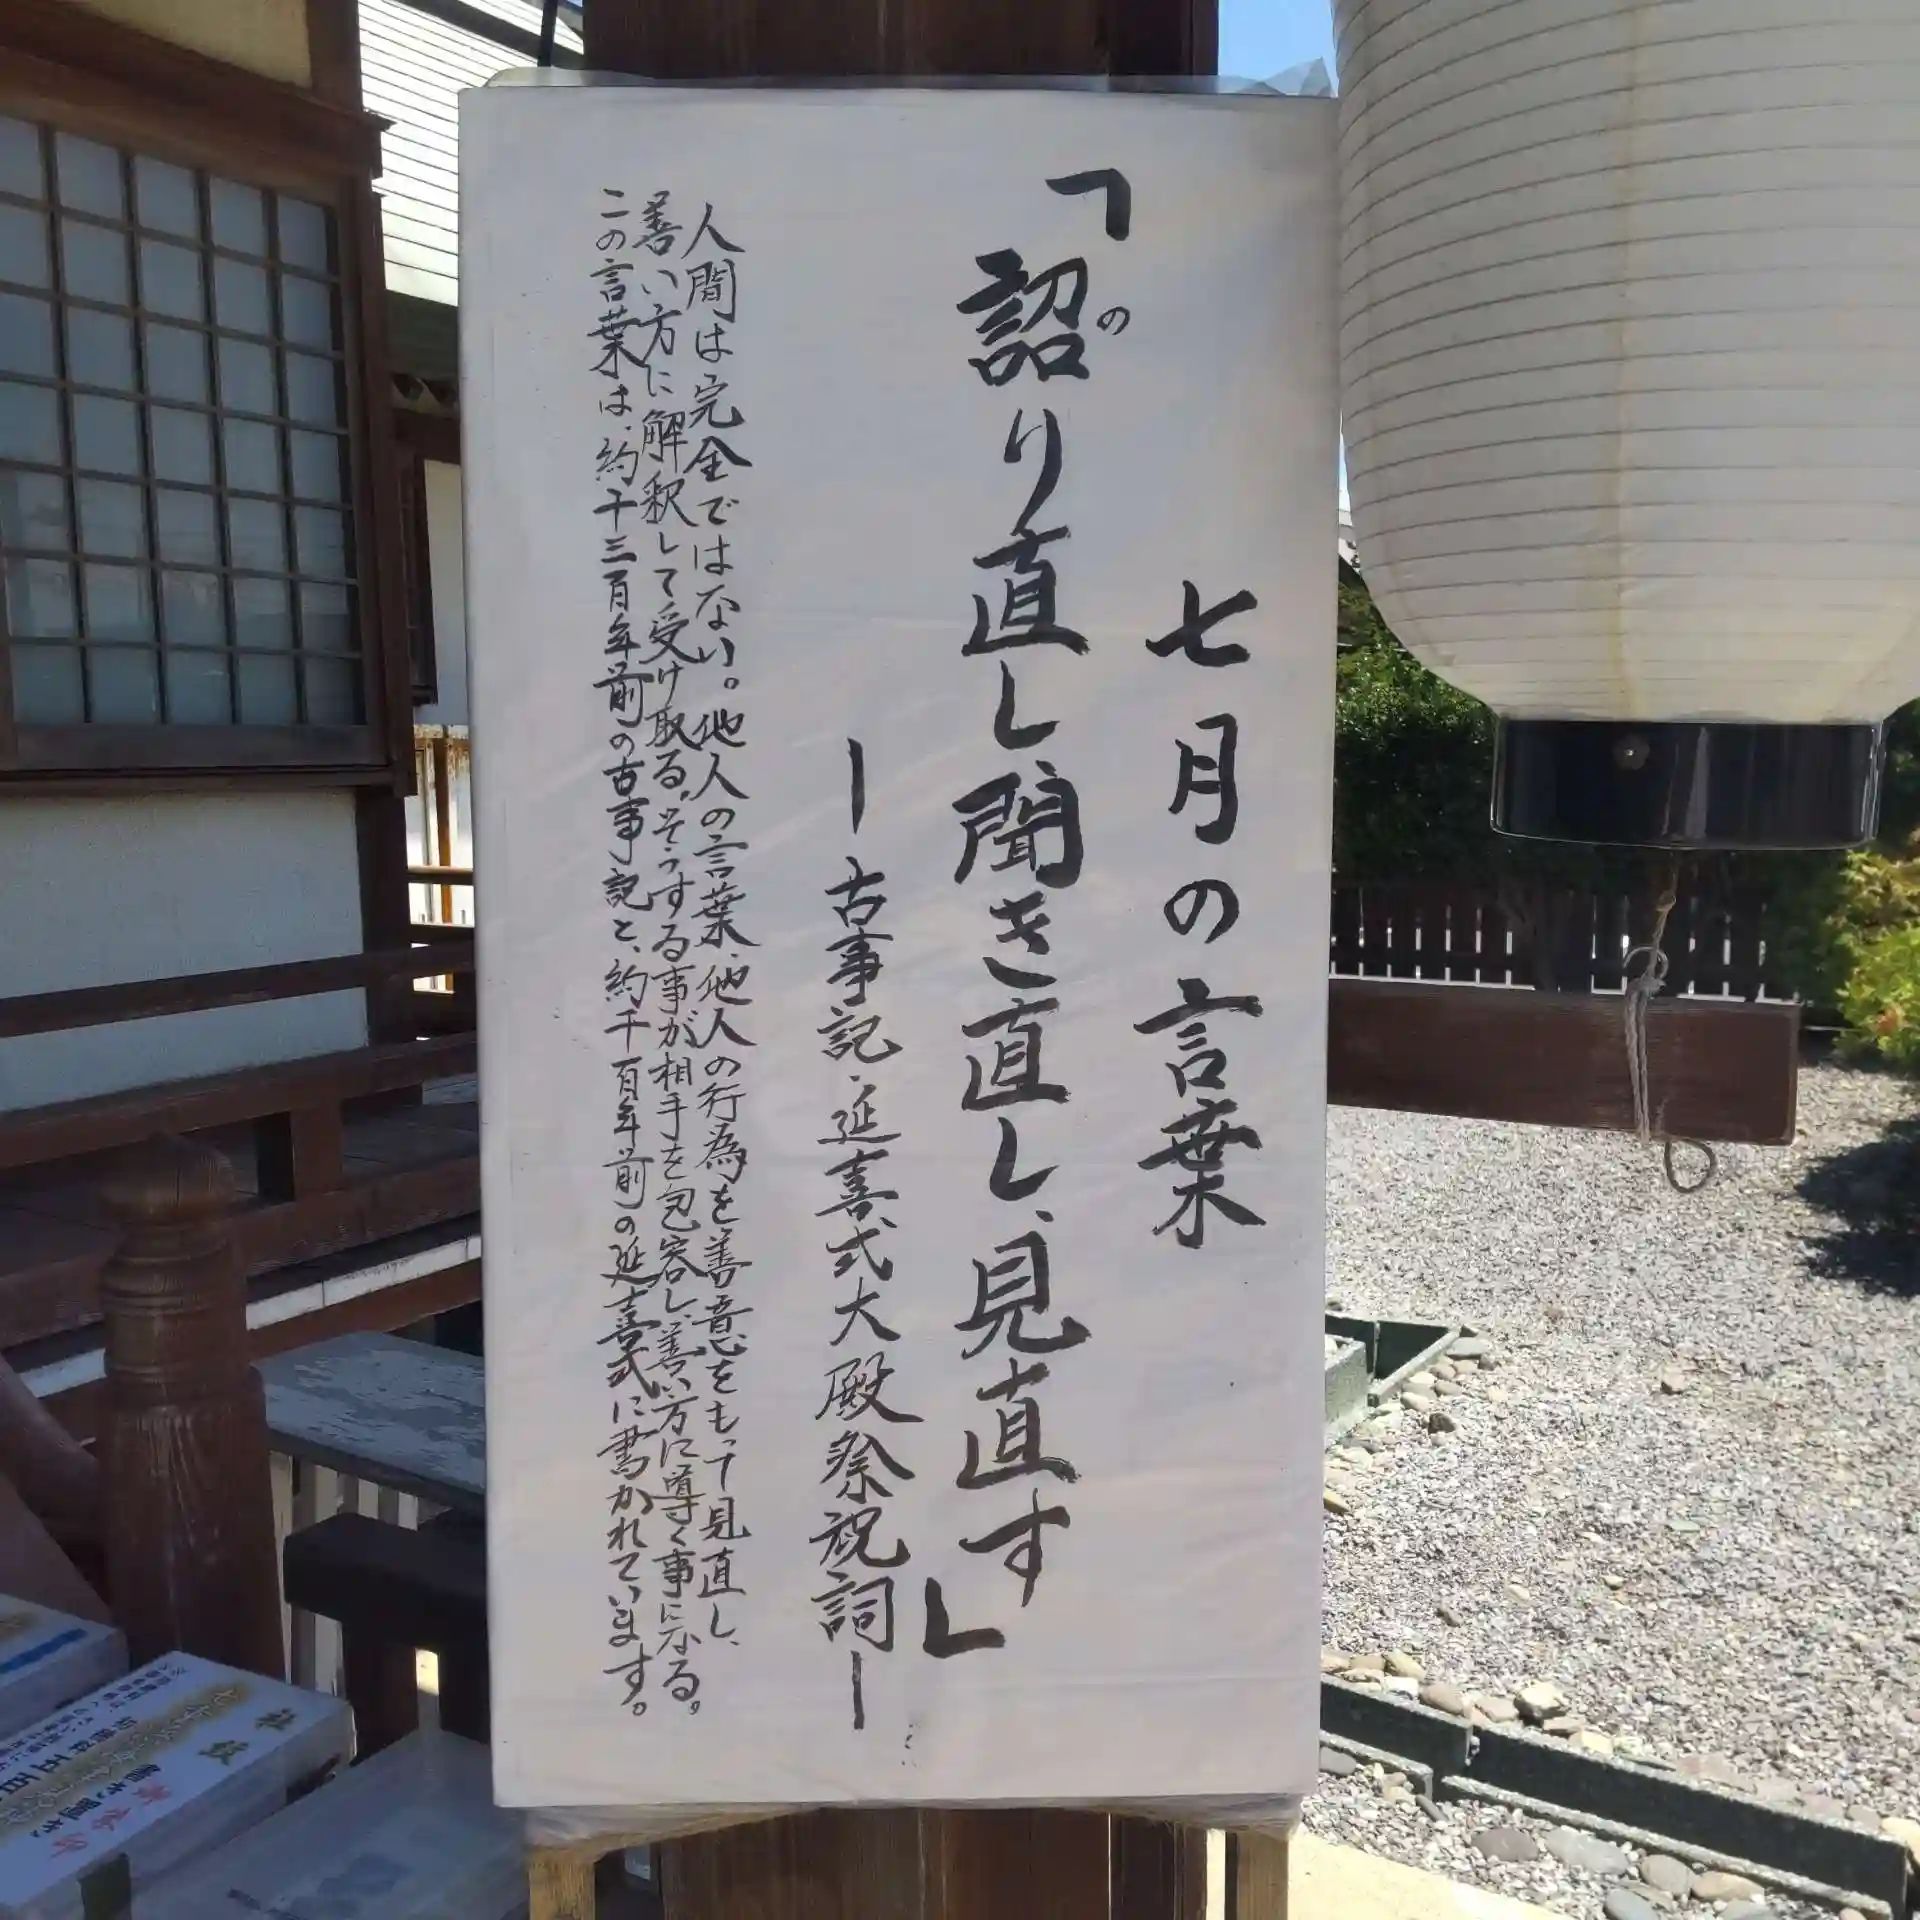 七月の言葉
「詔り直し、聞き直し、見直す」
の
―古事記・延喜式大殿祭祝詞―
人間は完全ではない。他人の言葉、他人の行為を善意をもって見直し、
善い方に解釈して受け取る。そうする事が相手を包容し、善い方に導く事になる。
この言葉は、約千三百年前の古事記と、約千百年前の延喜式に書かれています。